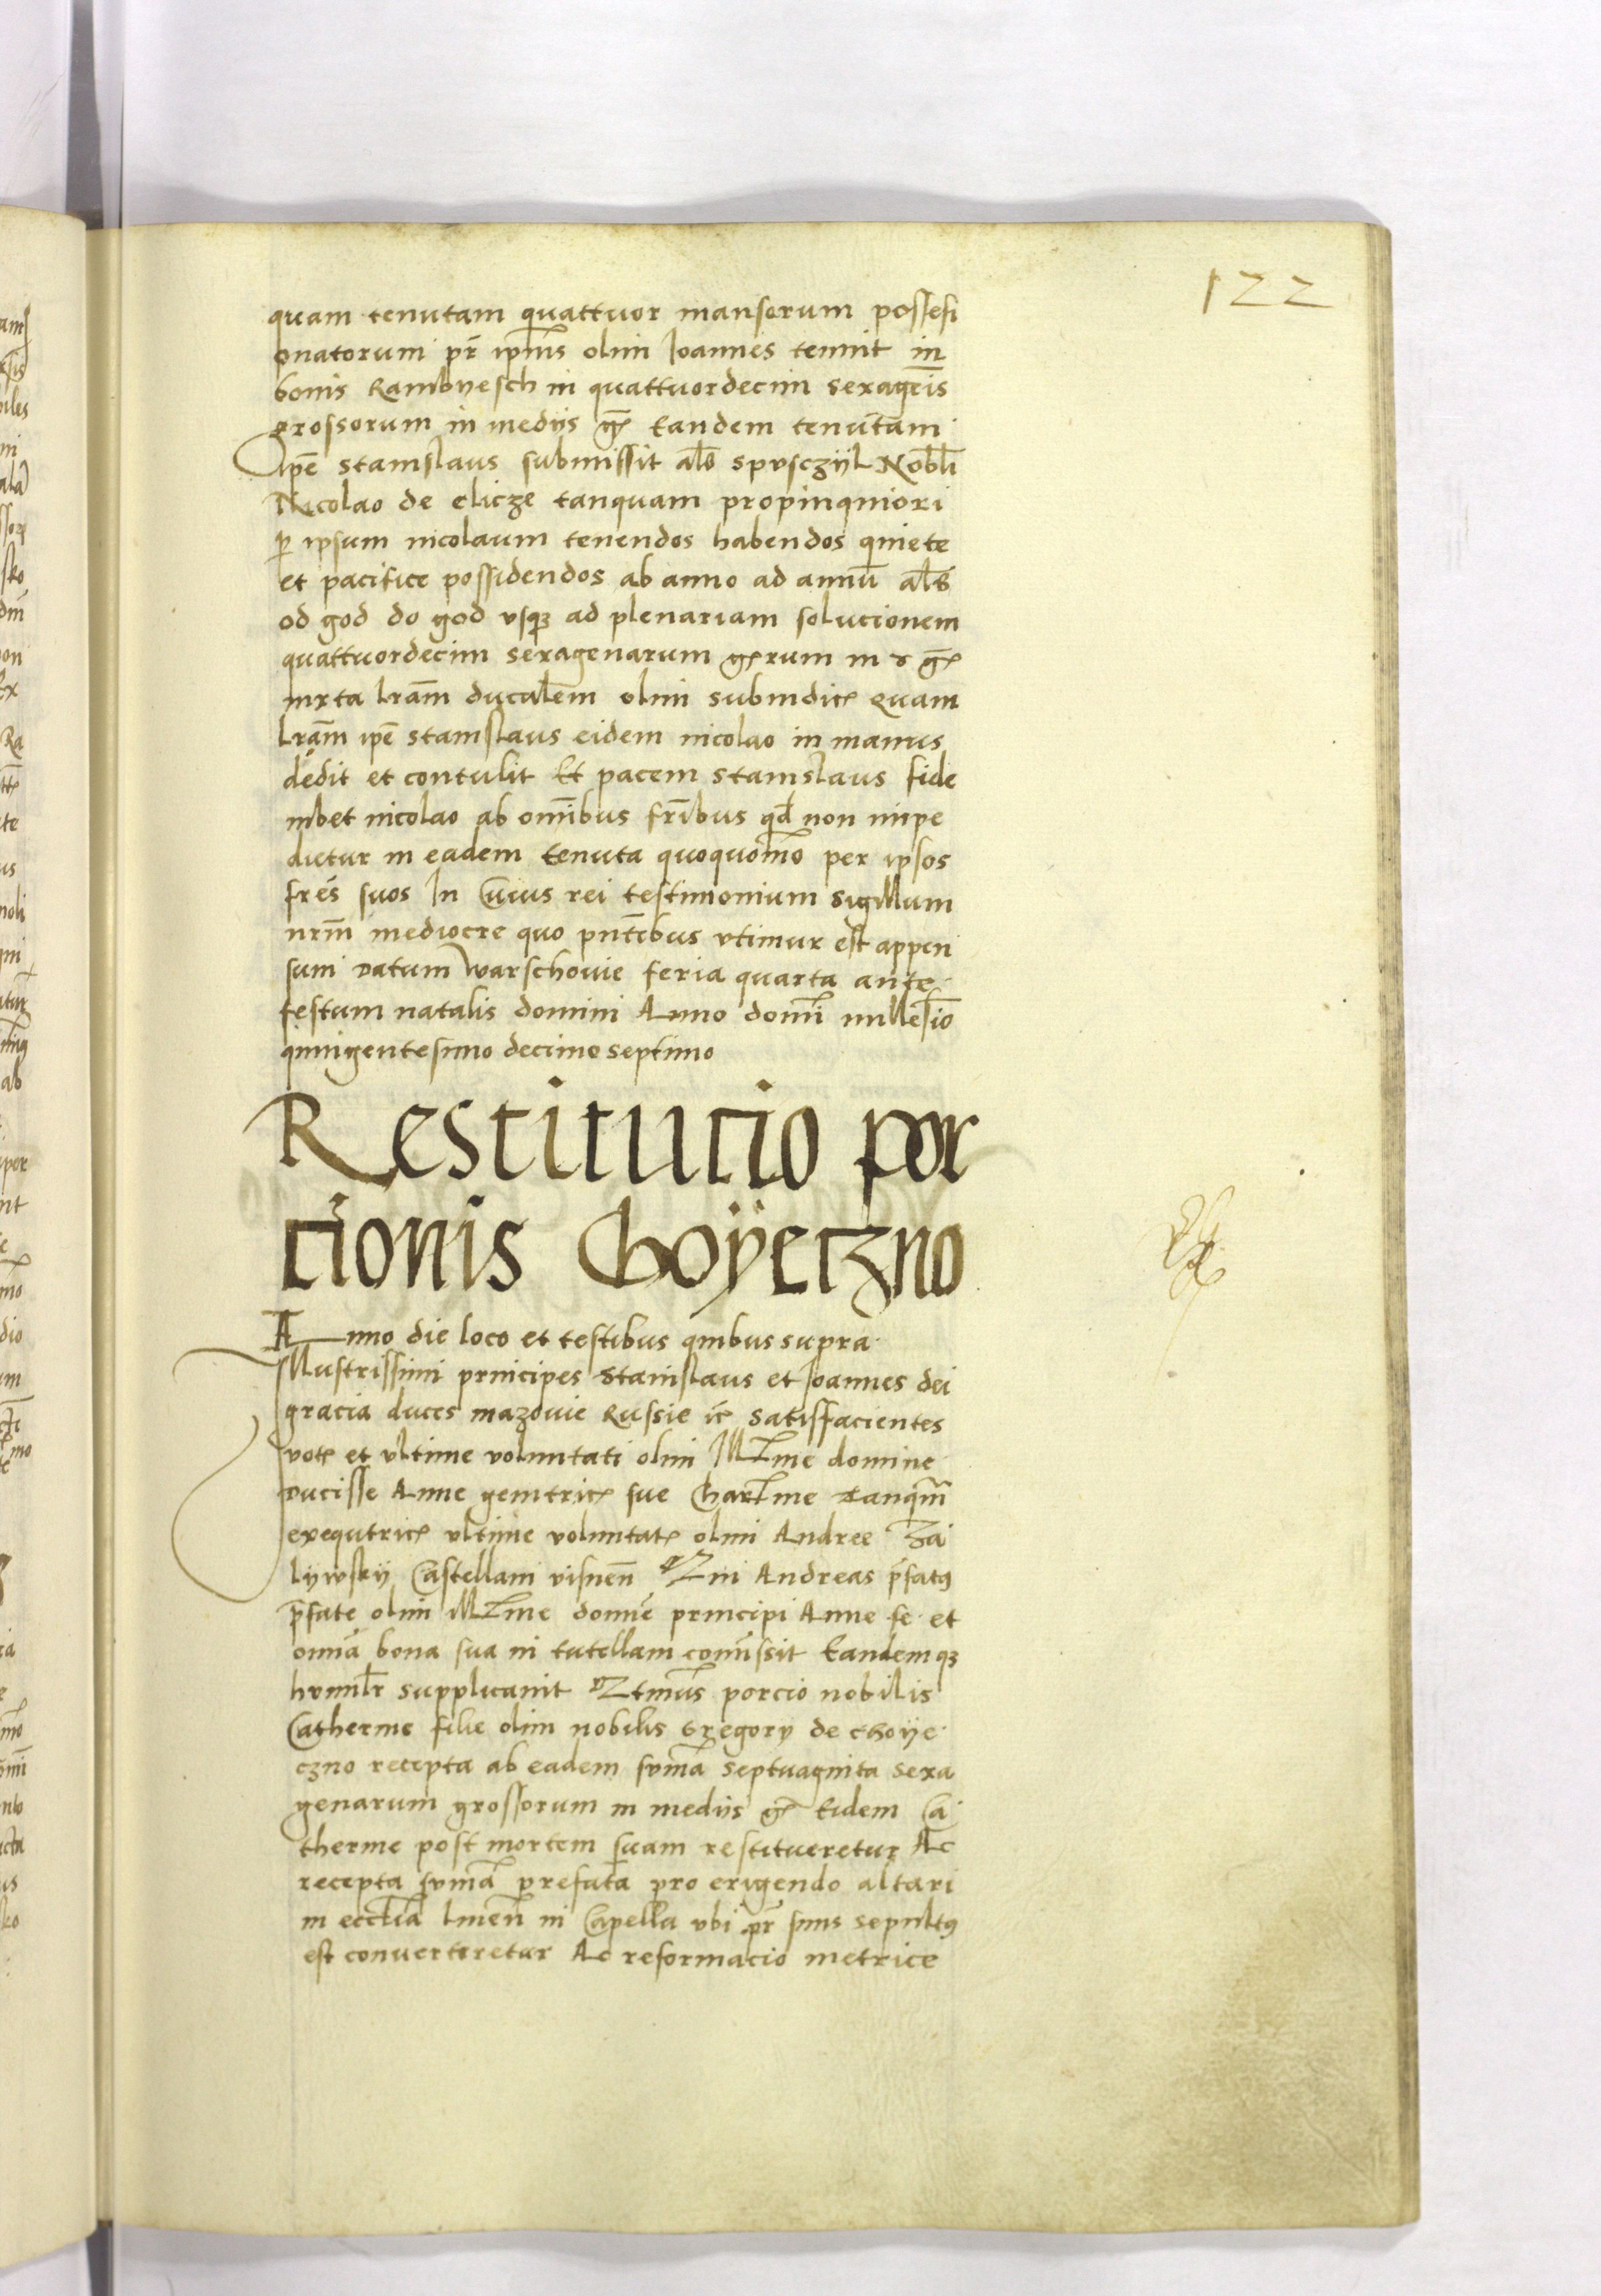 122
quam tenutam quattuor mansorum possesi
onatorum pr̄ ipīus olim Joannes tenuit in
bonis Rambyesch in quattuordecim sexagēis
grossorum in medijs gr̄ tandem tenutam
Ipē Stanislaus submissit al̄s spusczijl Nobl̄i
Nicolao de elicze tanquam propinquiori
ꝑ ipsum nicolaum tenendos habendos quiete
et pacifice possidendos ab anno ad annū al̄s
od god do god vsqꝫ ad plenariam solucionem
quattuordecim sexagenarum grrum in r gr̄
iuxta lrām ducalem olim subindice quam
lrām ipē Stanislaus eidem nicolao in manus
dedit et contulit Et pacem Stanislaus fide
iubet nicolao ab om̄ibus frībus qd̄ non impe
dietur in eadem tenuta quoquomō per ipsos
frēs suos In Cuius rei testimonium Sigillum
nrm̄ mediocre quo pn̄tībus vtimur est appen
sum Datum Warschouie feria quarta ante
festum natalis domini Anno domī millesīo
quingentesimo decimo septimo
Restitucio por
cionis Choÿeczno
Anno die loco et testibus quibus supra
Illustrissimi principes Stanislaus et Joannes dei
gracia duces mazouie Russie ꝛc̄ satisffacientes
vote et vltime voluntati olim Illme domine
Ducisse Anne genitrice sue Charme tanqm̄
exequtrice vltime voluntate olim Andree Za
lywskij Castellani visnen̄ Qm Andreas p̄fatꝰ
p̄fate olim Illme domē principi Anne se et
omīa bona sua in tutellam comīssit tandemqꝫ
humilr̄ supplicauit Qtinus porcio nobilis
Catherine filie olim nobilis Gregorij de Choije
czno recepta ab eadem sūma septuaginta sexa
genarum grossorum in medijs gr̄ Eidem Ca
therine post mortem suam restitueretur Ac
recepta sūma prefata pro erigendo altari
in eccl̄ia liuen̄ in Capella vbi pr̄ suus sepultꝰ
est conuerteretur Ac reformacio metrice